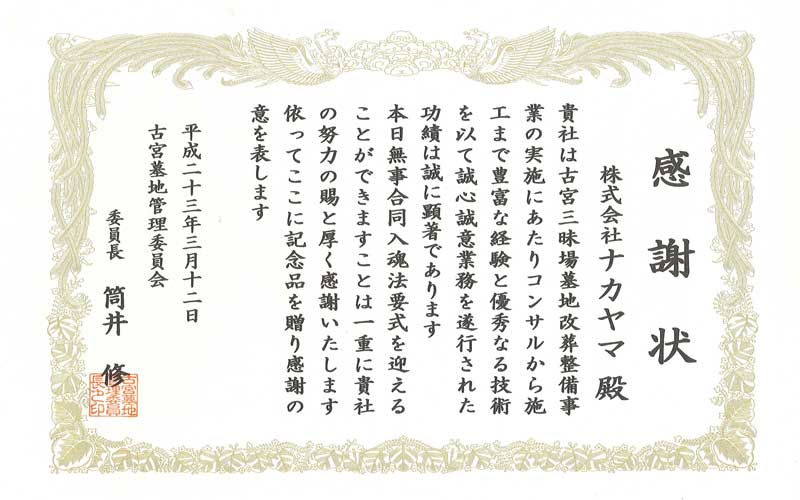 感謝状
株式会社ナカヤマ殿
貴社は古宮三昧場墓地改葬整備事
業の実施にあたりコンサルから施
工まで豊富な経験と優秀なる技術
を以て誠心誠意業務を遂行された
功績は誠に顕著であります
本日無事合同入魂法要式を迎える
ことができますことは一重に貴社
の努力の賜と厚く感謝いたします
依ってここに記念品を贈り感謝の
意を表します
平成二十三年三月十二日
古宮墓地管理委員会
委員長 筒井 修
古宮墓地
管理委員
長之印